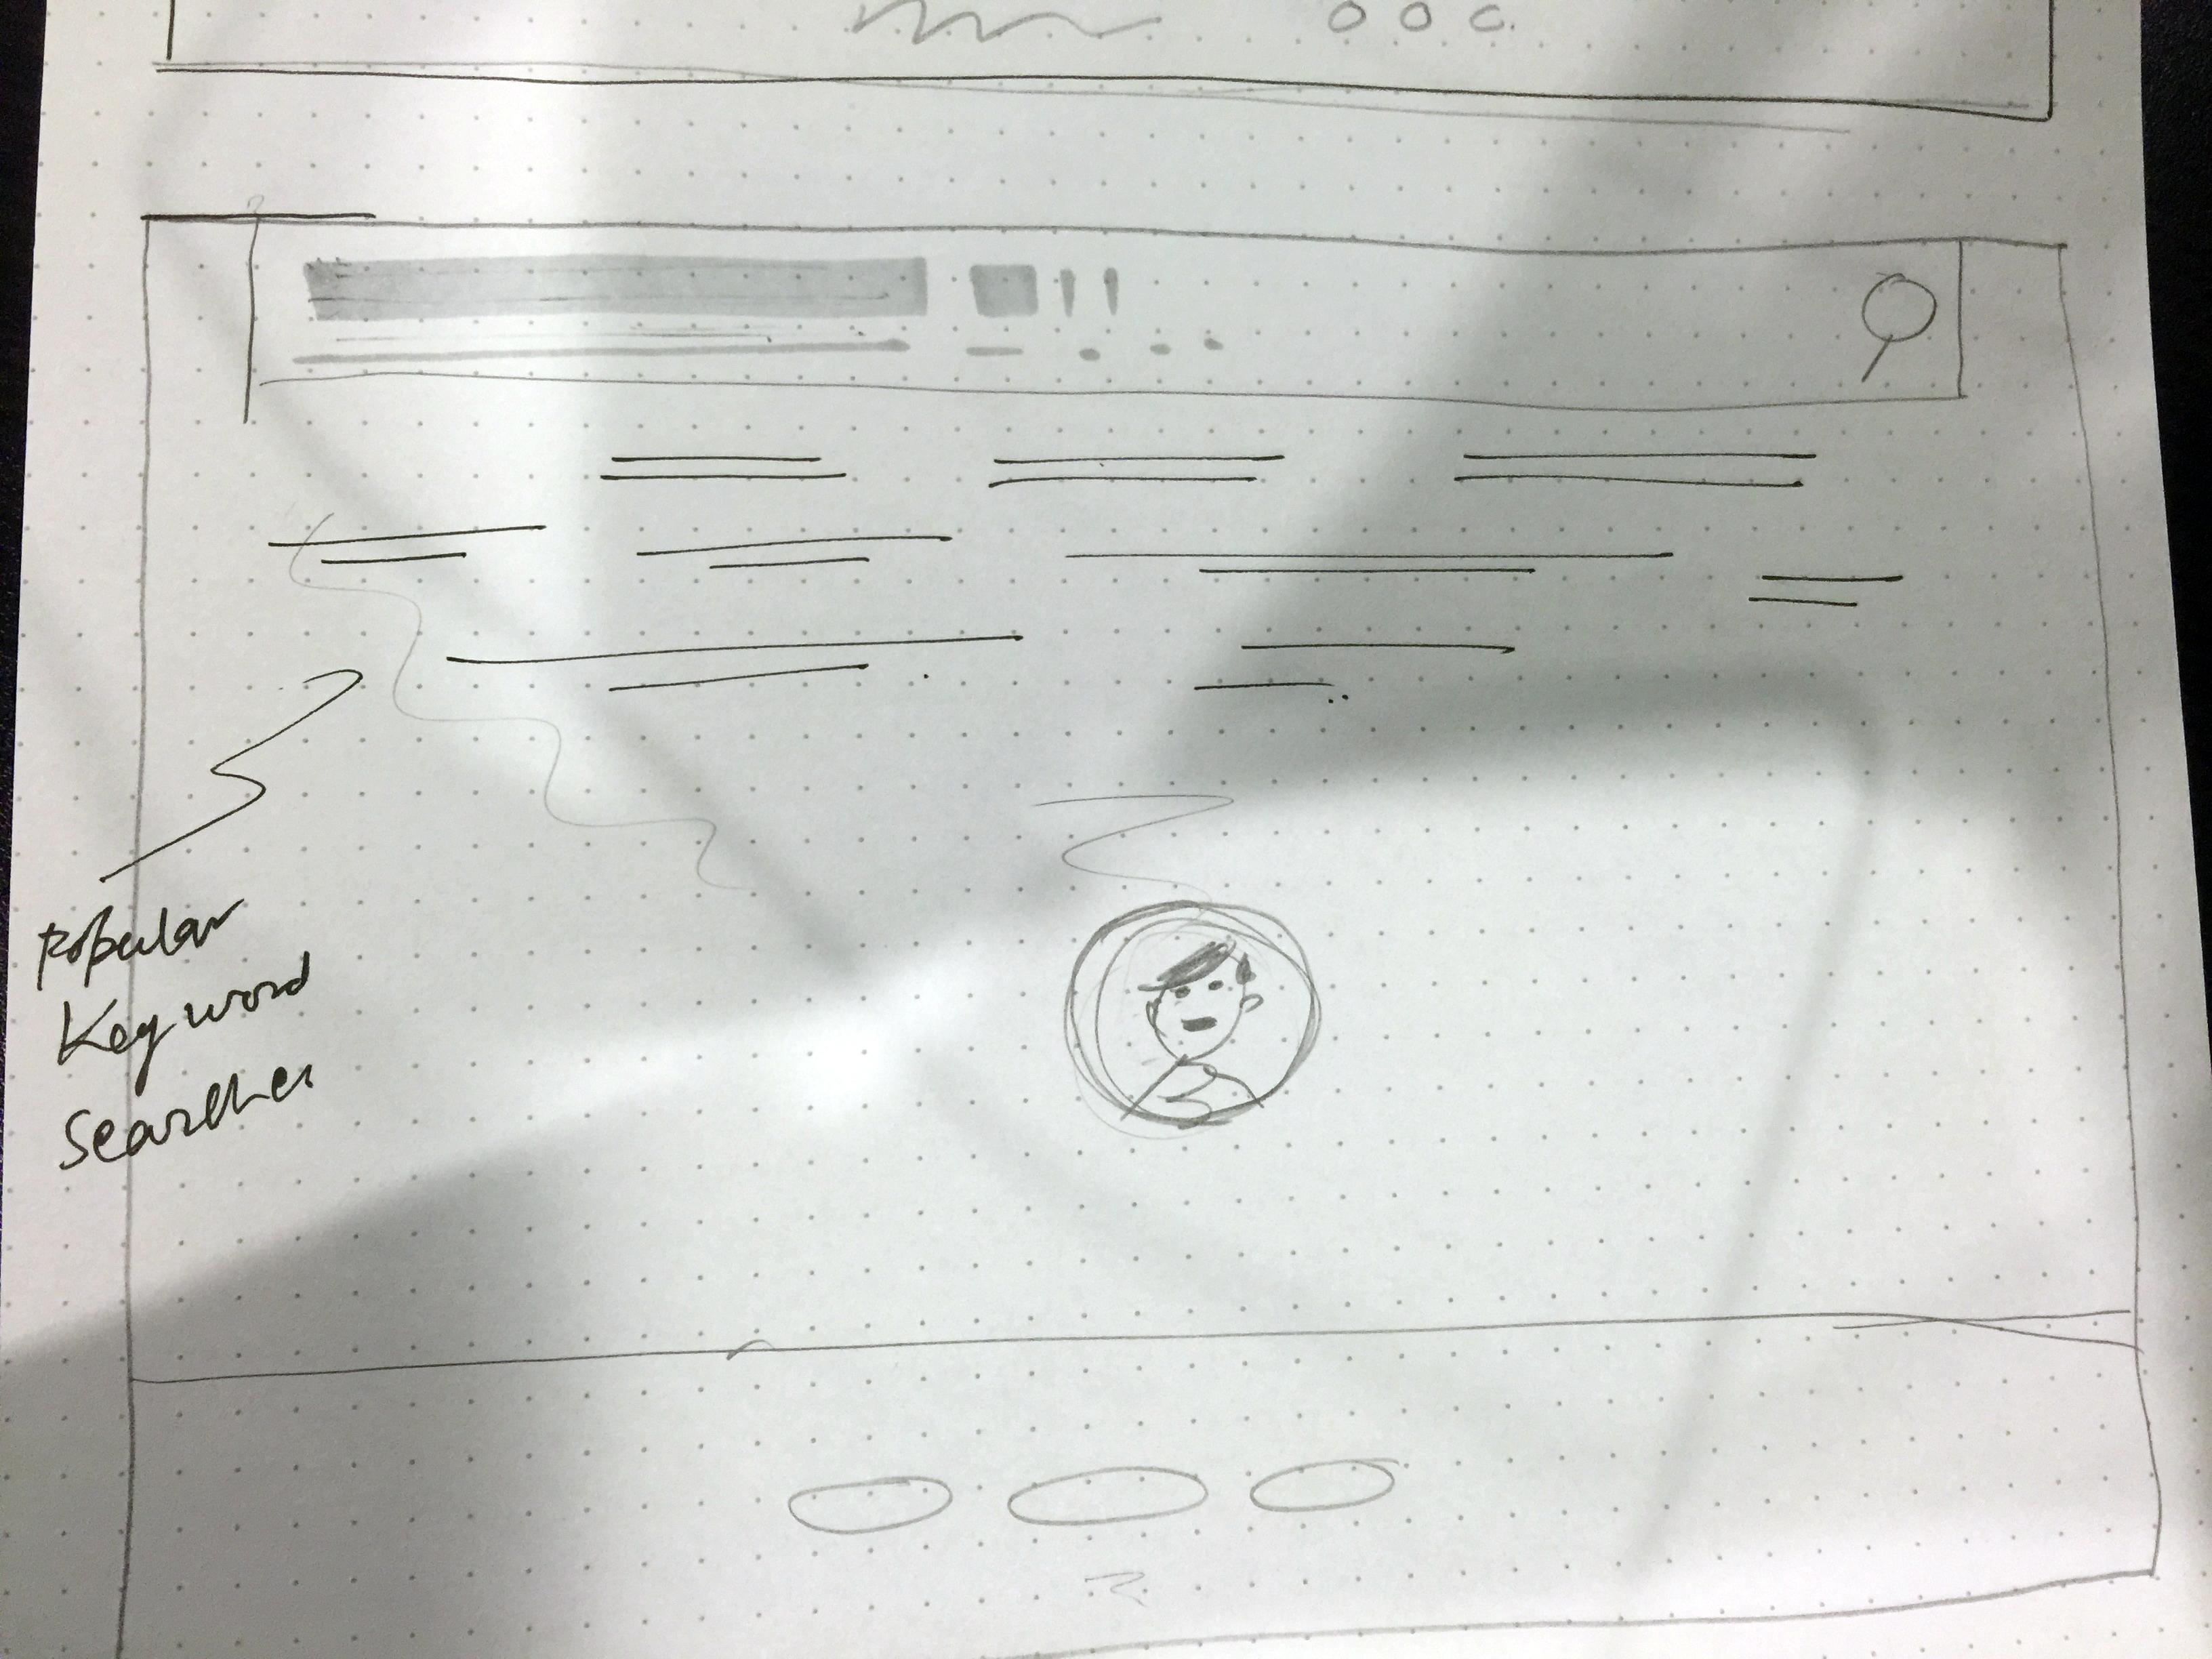 Popular
Keyword
Searches